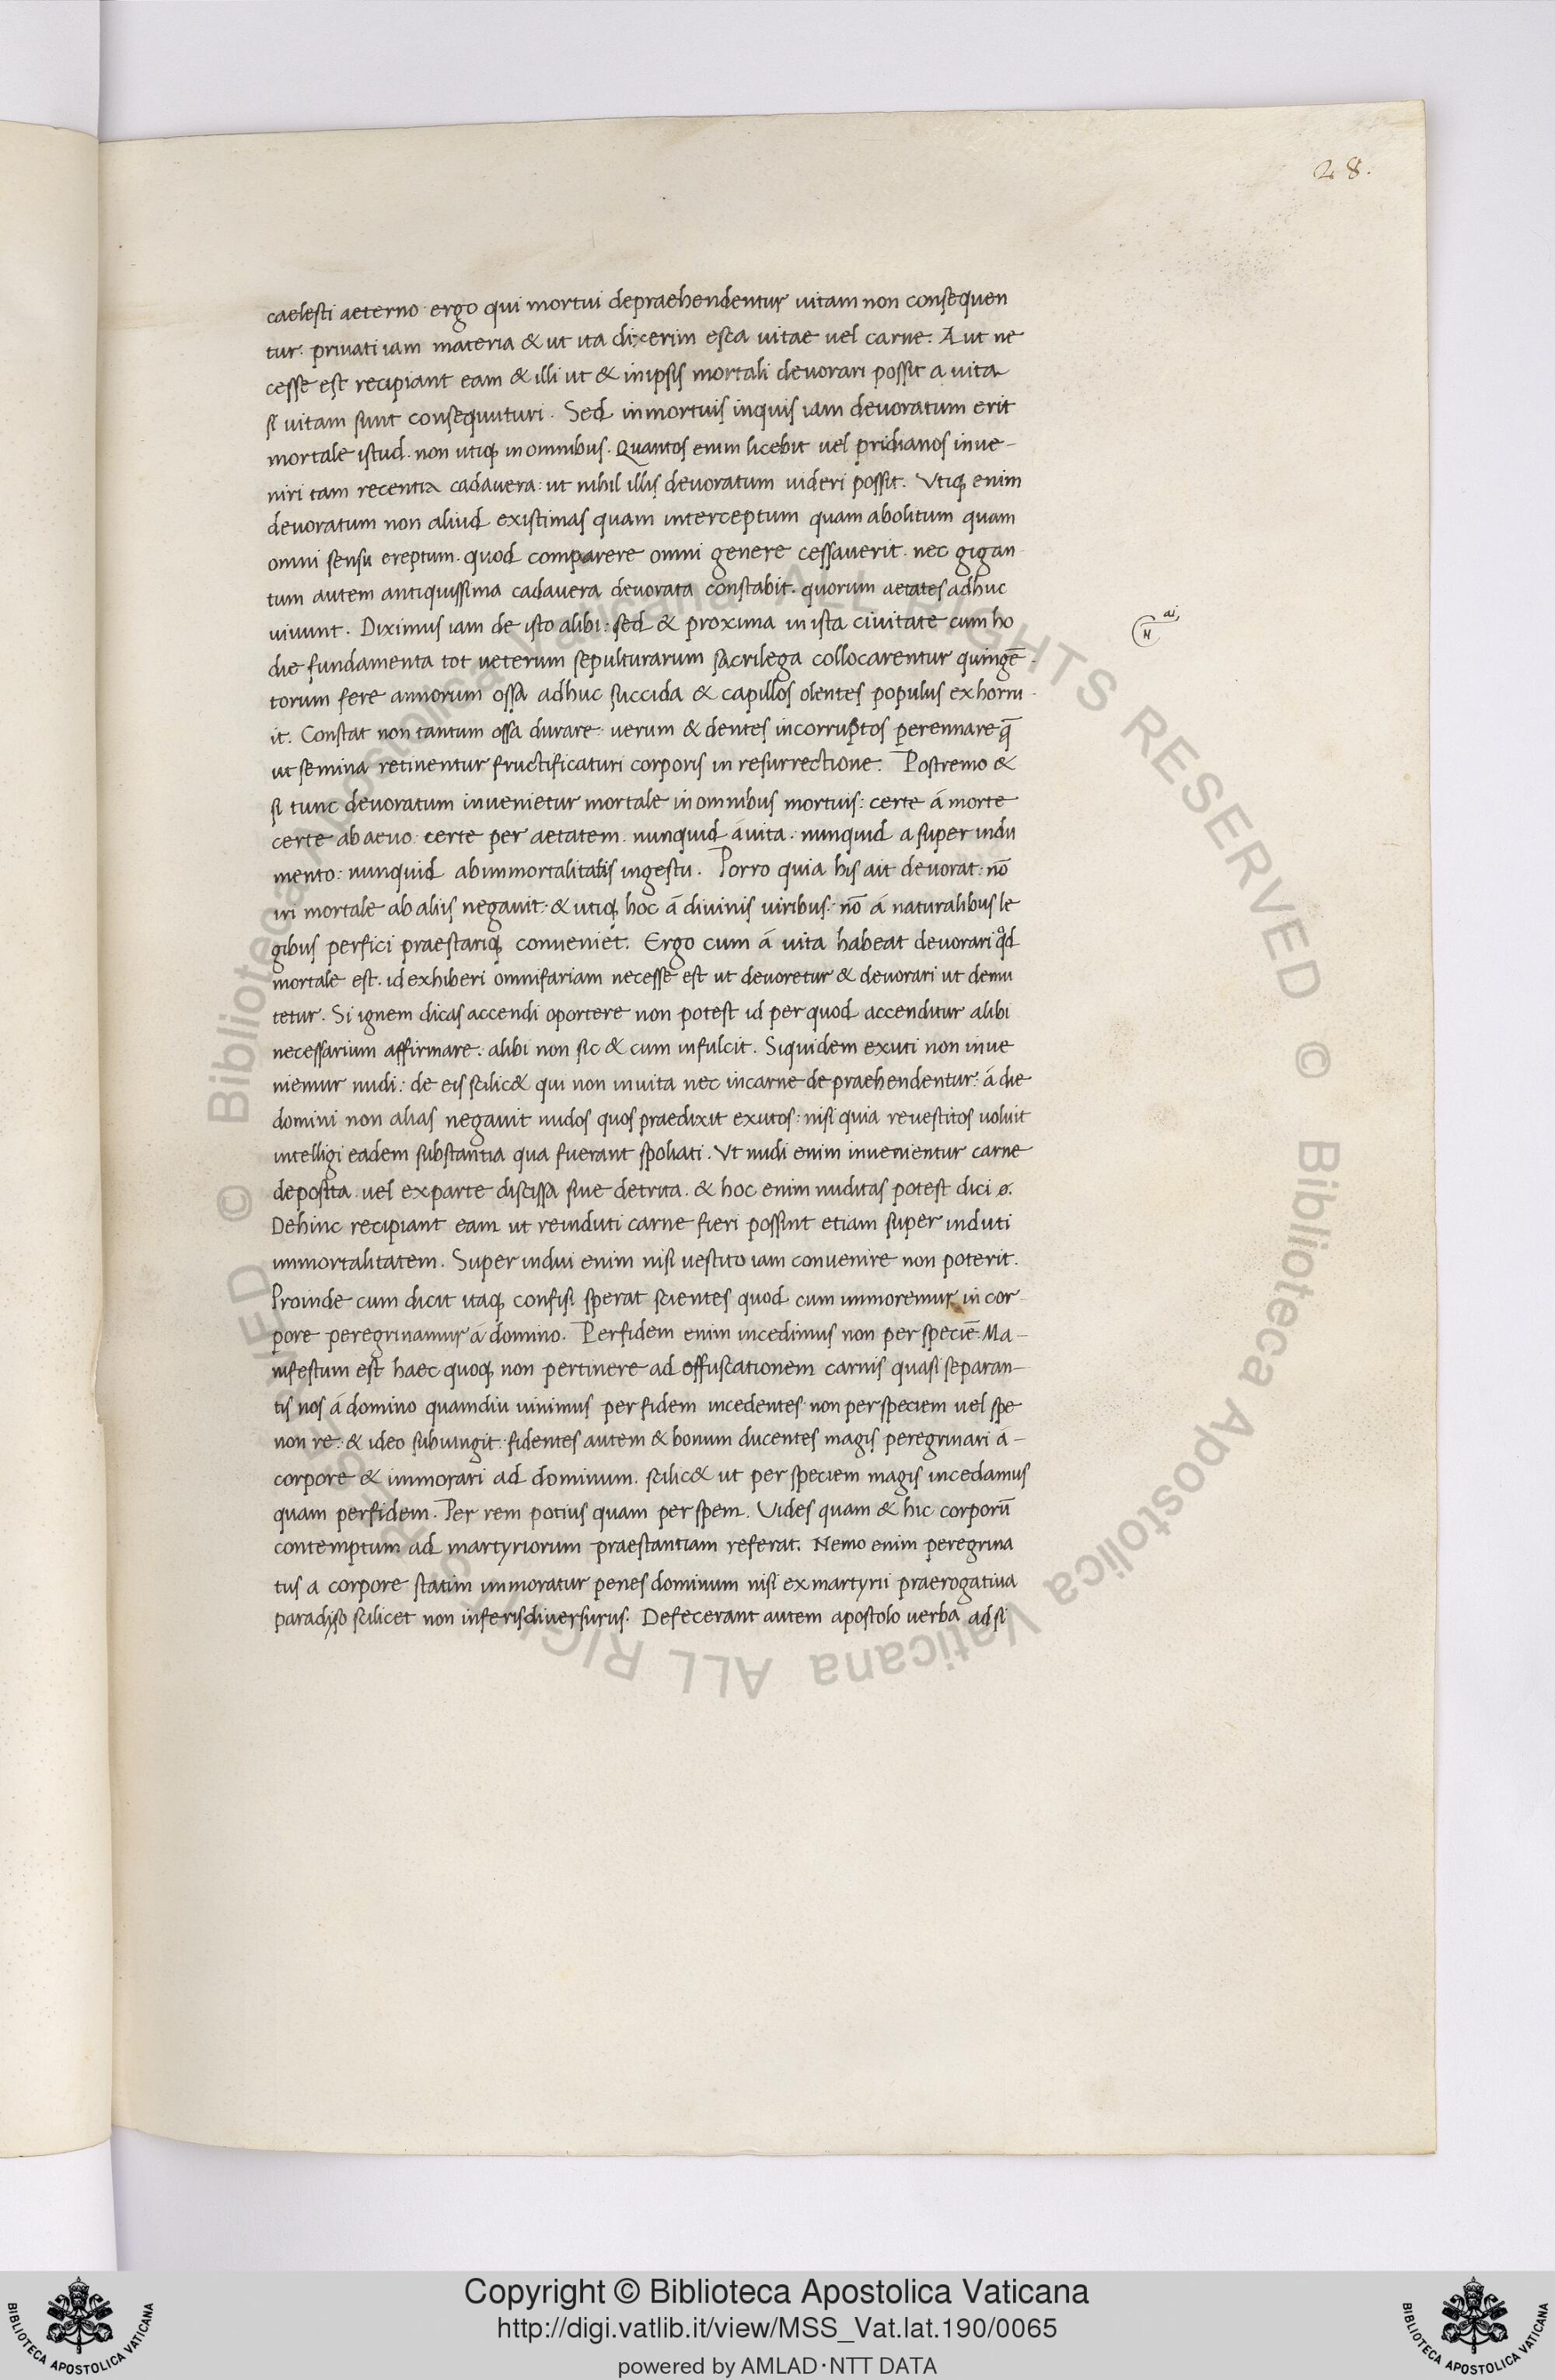 28.
caelesti aeterno ergo qui mortui depraehendentur uitam non consequen
tur. priuati iam materia & ut ita dixerim esca uitae uel carne. Aut ne
cesse est recipiant eam & illi ut & in ipsis mortali deuorari possit a uita
si uitam sunt consequuturi. Sed in mortuis inquis iam deuoratum erit
mortale istud. non utiq; in omnibus. Quantos enim licebit uel pridianos inue-
niri tam recentia cadauera: ut nihil illis deuoratum uideri possit. Vtiq; enim
deuoratum non aliud existimas quam interceptum quam abolitum quam
omni sensu ereptum. quod comparere omni genere cessauerit. nec gigan-
tum autem antiquissima cadauera deuorata constabit. quorum aetates adhuc
uiuunt. Diximus iam de isto alibi: sed & proxima in ista ciuitate cum ho
die fundamenta tot ueterum sepulturarum sacrilega collocarentur quingē-
torum fere annorum ossa adhuc succida & capillos olentes populus exhorru-
it. Constat non tantum ossa durare: uerum & dentes incorruptos perennare q̄
ut semina retinentur fructificaturi corporis in resurrectione. Postremo &
si tunc deuoratum inuenietur mortale in omnibus mortuis: certe á morte
certe ab aeuo certe per aetatem. nunquid á uita. nunquid a super indu
mento: nunquid ab immortalitatis ingestu. Porro quia his ait deuorat: nō
iri mortale ab aliis negauit: & utiq; hoc á diuinis uiribus: nō á naturalibus le
gibus perfici praestariq; conueniet. Ergo cum á uita habeat deuorari qd
mortale est. id exhiberi omnifariam necesse est ut deuoretur & deuorari ut demu
tetur. Si ignem dicas accendi oportere non potest id per quod accenditur alibi
necessarium affirmare. alibi non sic & cum infulcit. Siquidem exuti non inue
niemur nudi: de eis scilic& qui non in uita nec in carne depraehendentur: á die
domini non alias negauit nudos quos praedixit exutos: nisi quia reuestitos uoluit
intelligi eadem substantia qua fuerant spoliati. Vt nudi enim inuenientur carne
deposita uel ex parte discissa siue detrita. & hoc enim nuditas potest dici
Dehinc recipiant eam ut reinduti carne fieri possint etiam super induti
immortalitatem. Super indui enim nisi uestito iam conuenire non poterit.
Proinde cum dicit itaq; confisi sperat scientes quod cum immoremur in cor-
pore peregrinamur á domino. Per fidem enim incedimus non per speciē. Ma-
nifestum est haec quoq; non pertinere ad offuscationem carnis quasi separan-
tis nos á domino quamdiu uiuimus per fidem incedentes non per speciem uel spe
non re: & ideo subiungit: fidentes autem & bonum ducentes magis peregrinari á-
corpore & immorari ad dominum. scilic& ut per speciem magis incedamus
quam per fidem. Per rem potius quam per spem. Vides quam & hic corporū
contemptum ad martyriorum praestantiam referat. Nemo enim peregrina
tus a corpore statim immoratur penes dominum nisi ex martyrii praerogatiua
paradyso scilicet non inferis diuersurus. Defecerant autem apostolo uerba ad si
© Biblioteca Apostolica Vaticana ALL RIGHTS RESERVED © Biblioteca Apostolica Vaticana ALL RIGHTS RESERVED
Copyright © Biblioteca Apostolica Vaticana
http://digi.vatlib.it/view/MSS_Vat.lat.190/0065
powered by AMLAD·NTT DATA
BIBLIOTECA APOSTOLICA VATICANA
BIBLIOTECA APOSTOLICA VATICANA